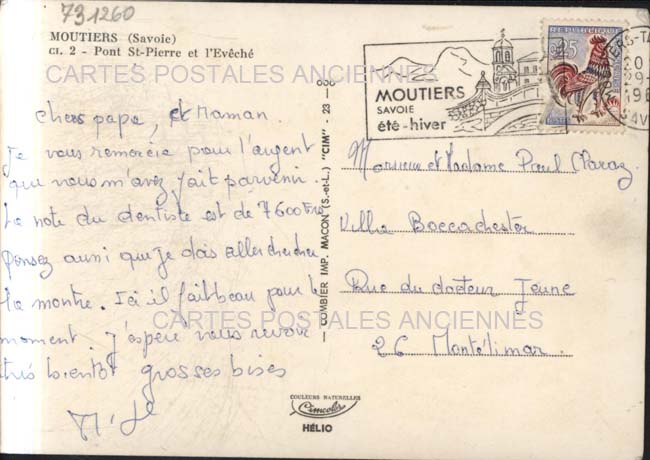 731260
MOUTIERS (Savoie)
CI. 2 - Pont St-Pierre et l'Evêché
CARTES POSTALES ANCIENNES
chers papa, et Maman.
Je vous remercie pour l'argent
que vous m'avez fait parvenir.
La note du dentiste est de 7600 Frs
Pensez aussi que je dois aller chercher
la montre. Ici il fait beau pour le
moment. J'espère vous revoir
très bientôt grosses bises
COMBIER IMP. MACON (S.-et-L.) "CIM" - 23 -
MOUTIERS
SAVOIE
été-hiver
0,25
Monsieur et Madame Paul
Villa
Rue du docteur Jeune
26 Montélimar
CARTES POSTALES ANCIENNES
COULEURS NATURELLES
Cimcolor
HÉLIO